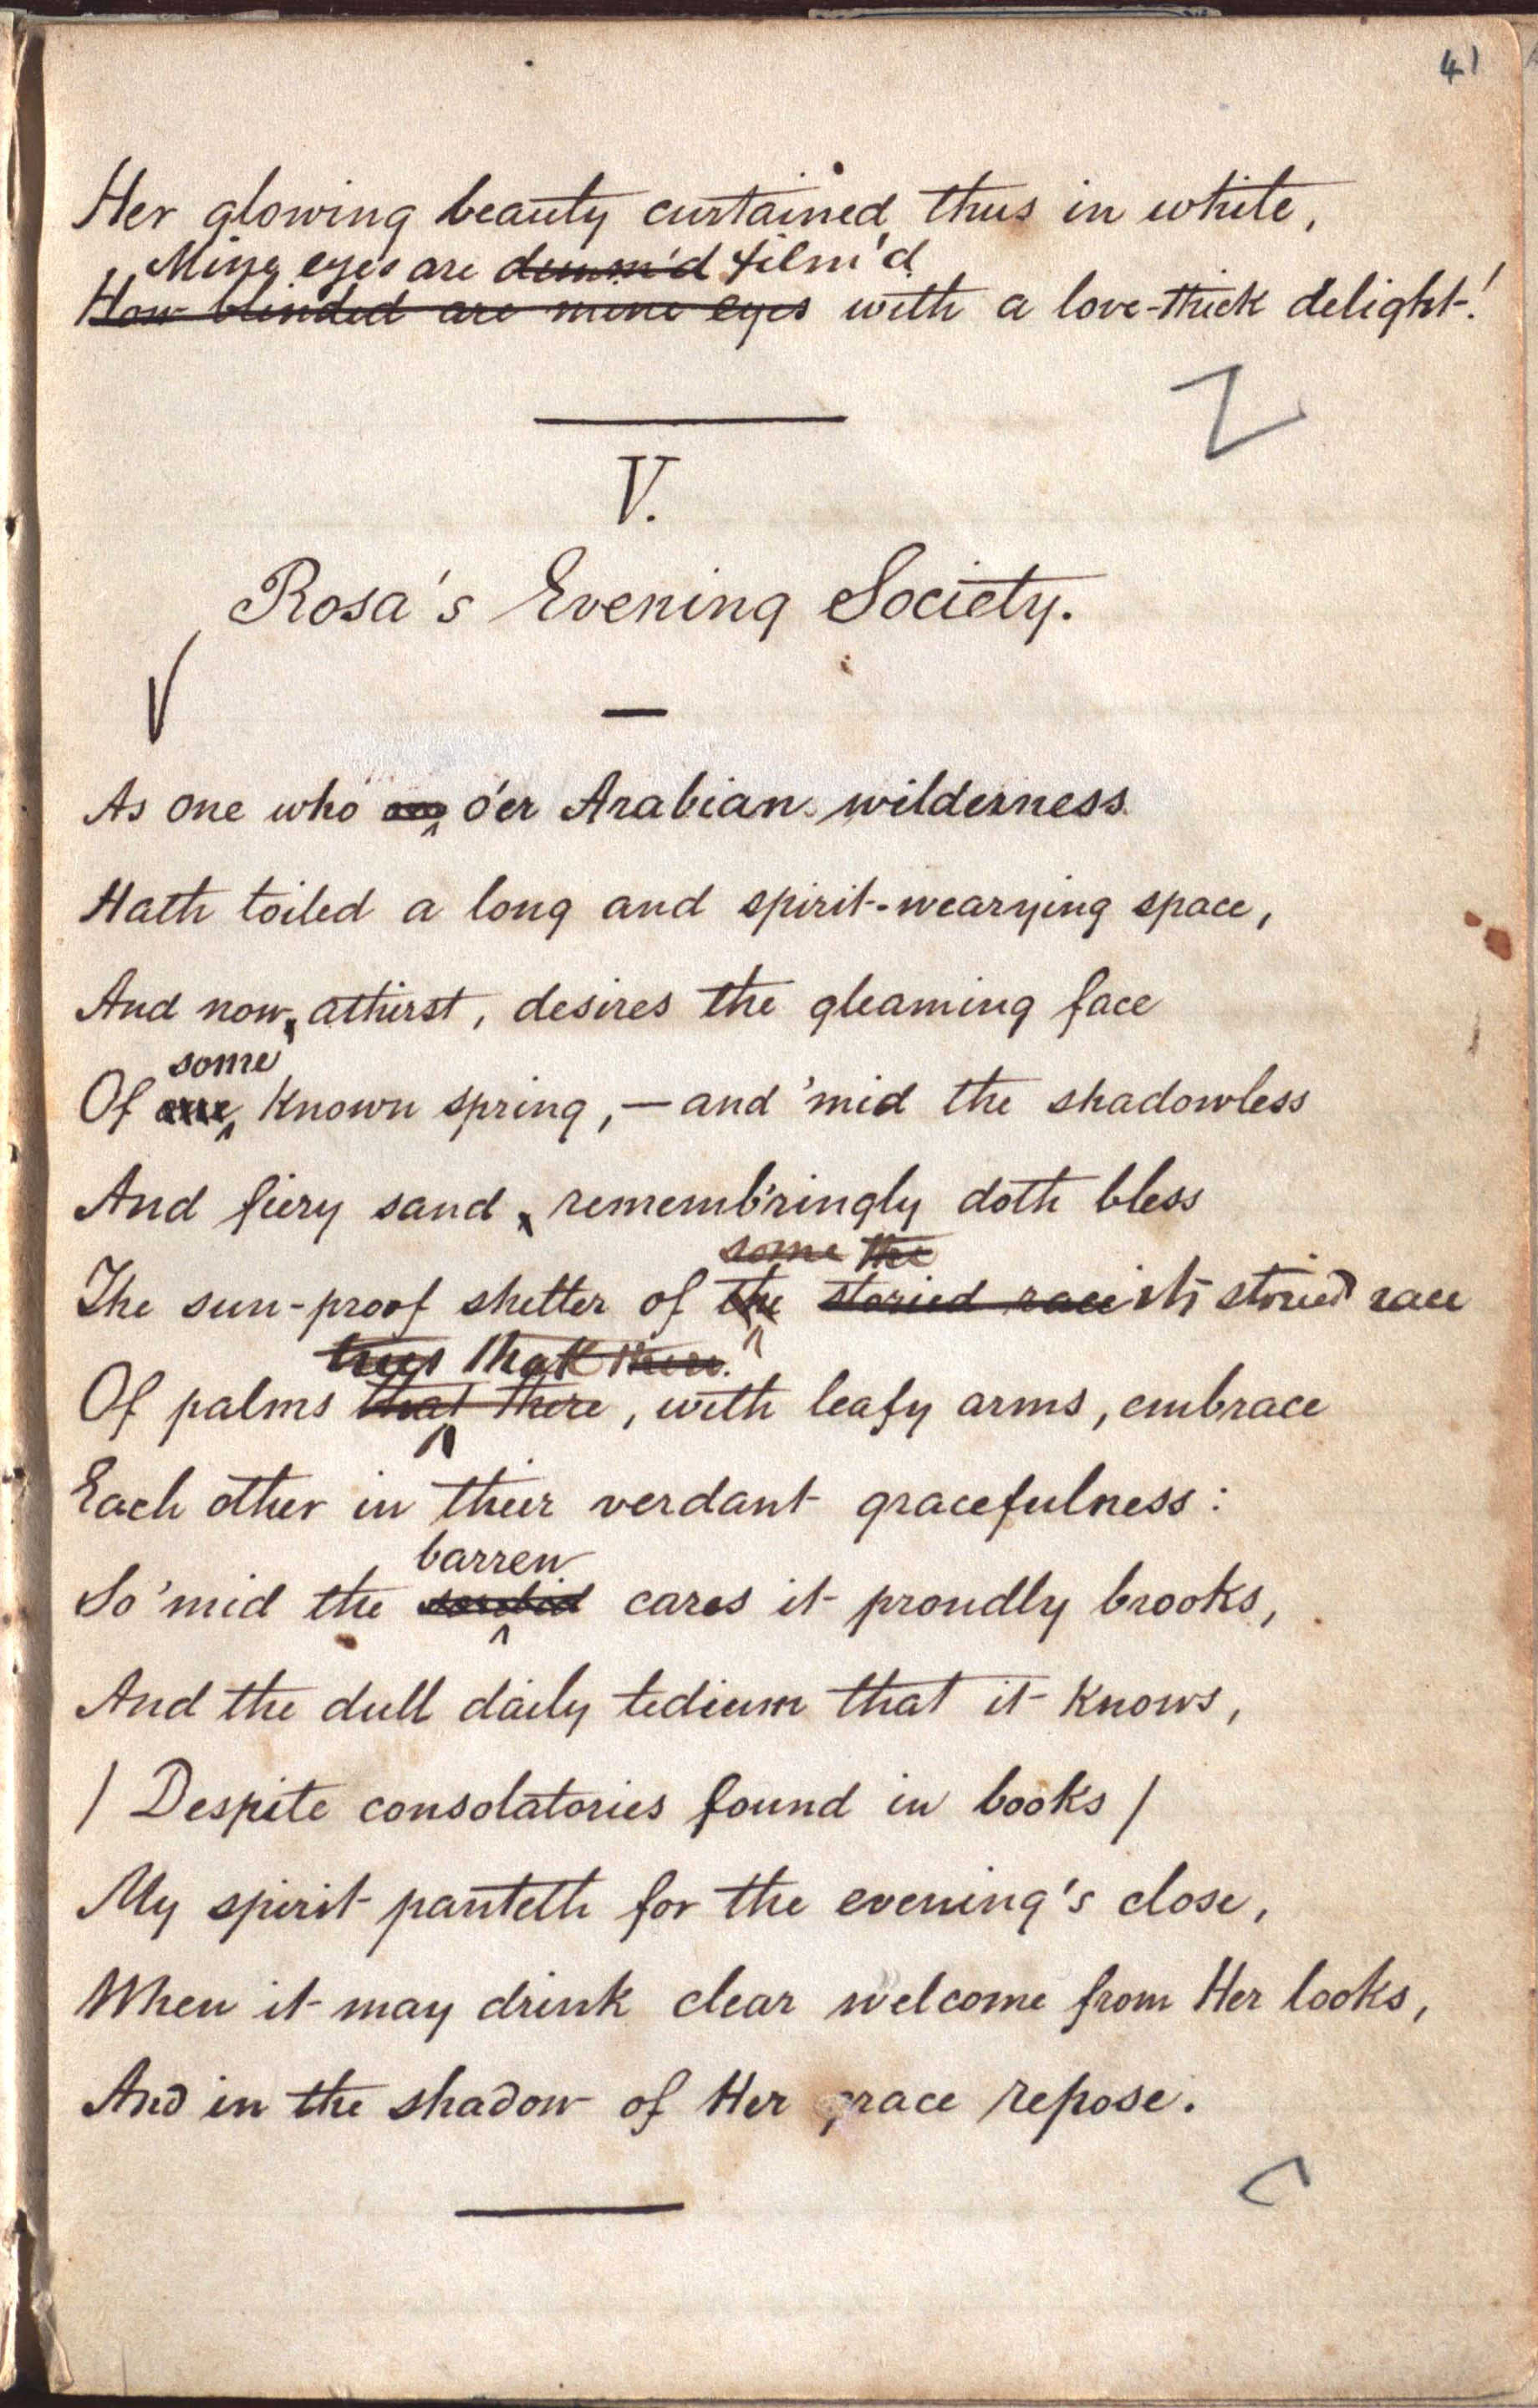 41
Her glowing beauty curtained thus in white,
Mine eyes are dimm'd film'd
How blinded are mine eyes with a love-thick delight!
V.
Rosa's Evening Society.
As one who o'er Arabian wilderness
Hath toiled a long and spirit-wearying space,
And now, athirst, desires the gleaming face
some
Of one known spring,—and 'mid the shadowless
And fiery sand, rememb'ringly doth bless
some the
The sun-proof shelter of the storied race its storied race
trees that there
Of palms that there, with leafy arms, embrace
Each other in their verdant gracefulness:
barren
So 'mid the sordid cares it proudly brooks,
And the dull daily tedium that it knows,
/ Despite consolatories found in books /
My spirit panteth for the evening's close,
When it may drink clear welcome from Her looks,
And in the shadow of Her grace repose.